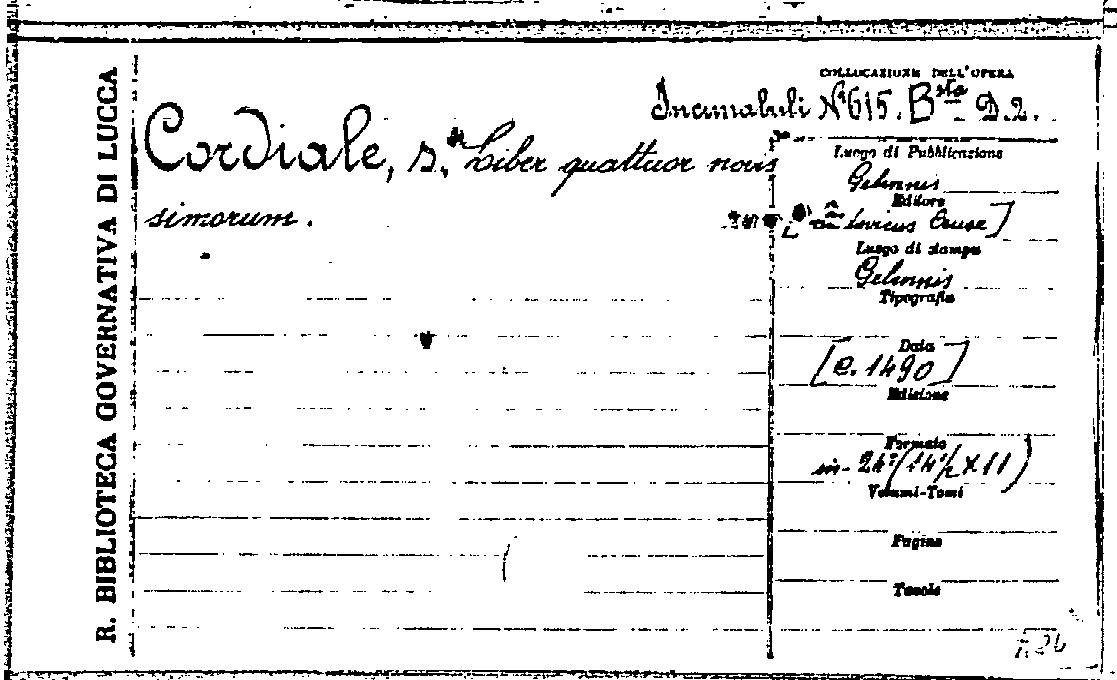 R. BIBLIOTECA GOVERNATIVA DI LUCCA
COLLOCAZIONE DELL'OPERA
Incunabuli N° 615. Bsta D.2.
Cordiale, s. Liber quattuor novis
simorum.
Luogo di Pubblicazione
Gebennis
Editore
Cruse]
Luogo di stampa
Gebennis
Tipografia
Data
[c. 1490]
Edizione
Formato
in-24° (14½ X 11)
Volumi-Tomi
Pagine
Tavole